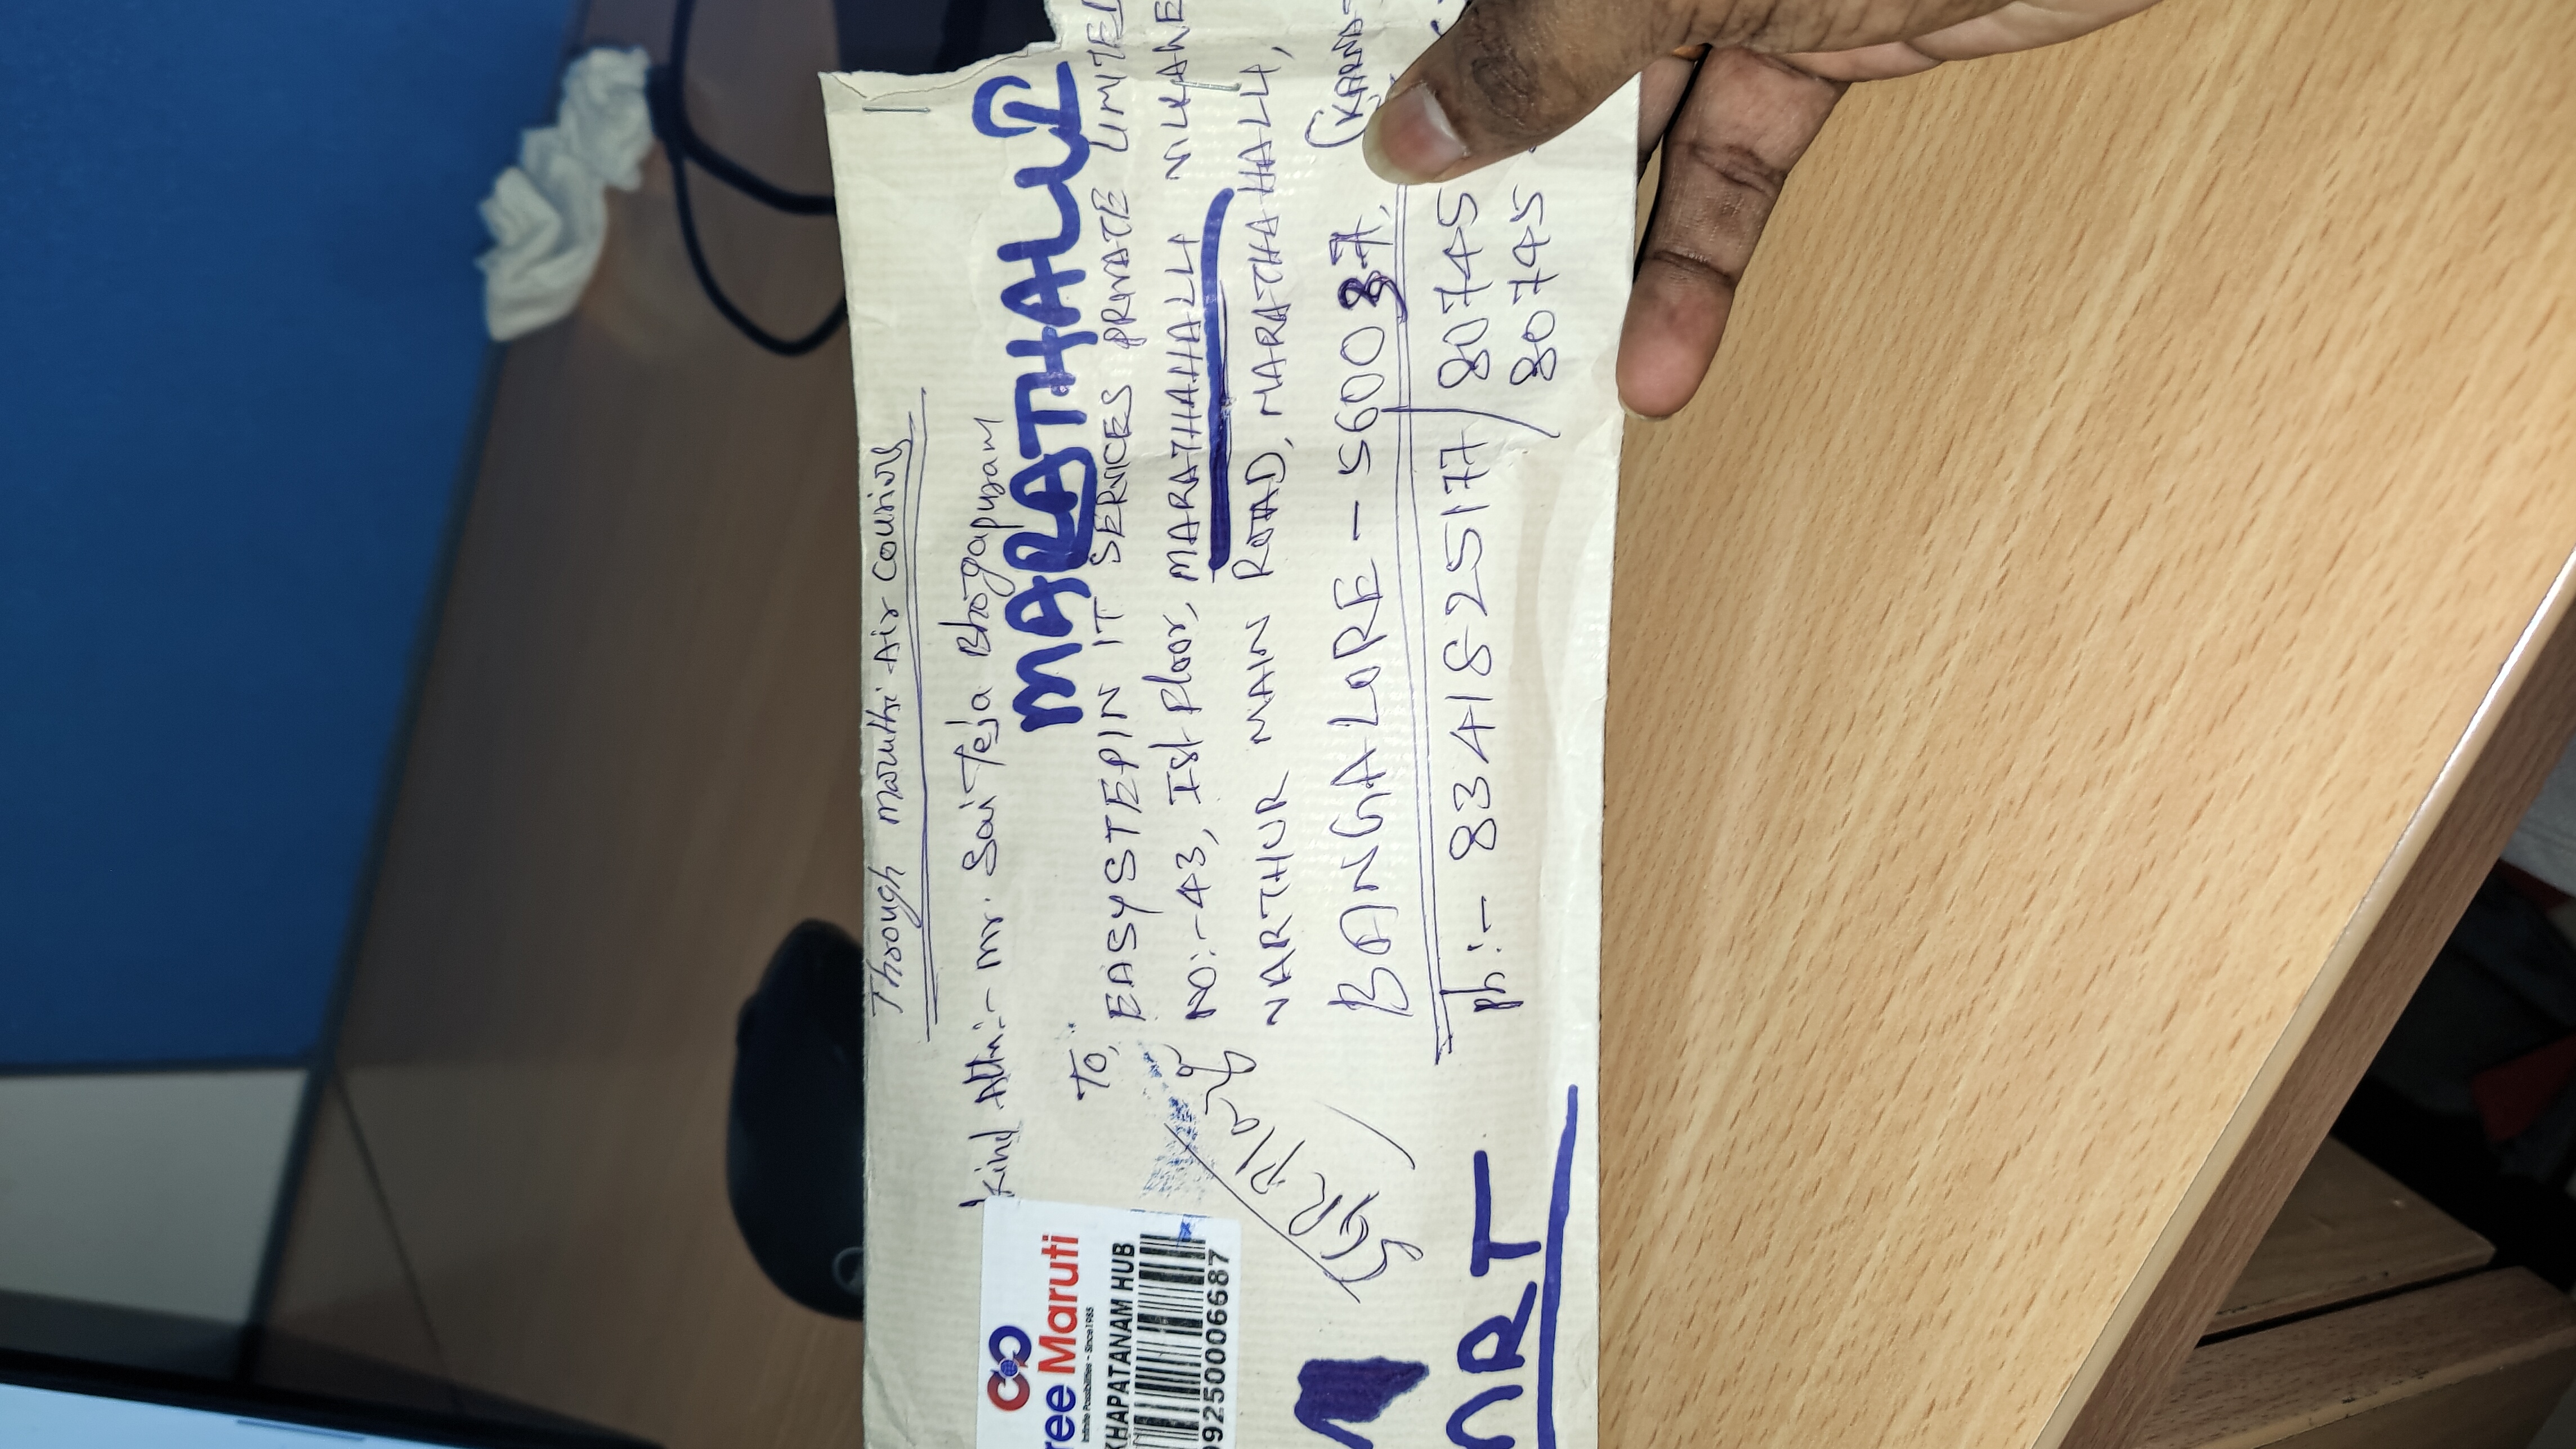 Through Maruthi Air Couriers
Kind Attn:- Mr. Sai Teja Bhogapuram
MARATHALLI
To,
EASYSTEPIN IT SERVICES PRIVATE LIMITED
NO:- 43, Ist Floor, MARATHAHALLI
VARTHUR MAIN ROAD, MARATHAHALLI,
BANGALORE - 560037.
Ph:- 8341825177 / 80745
/ 80745
ree Maruti
Infinite Possibilities - Since 1985
KHAPATANAM HUB
0992500006687
MRT